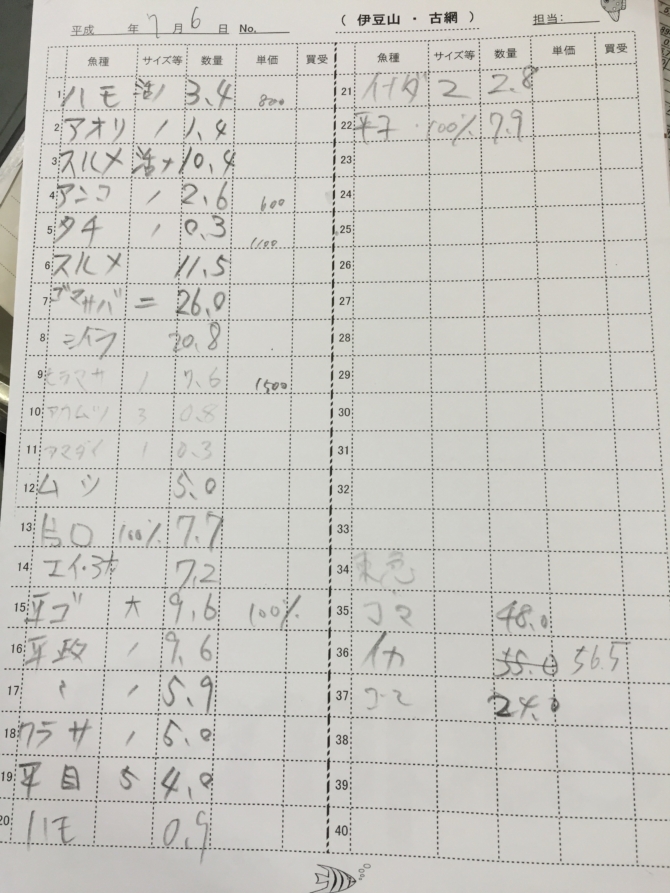 平成 年 7 月 6 日 No. （ 伊豆山 ・ 古網 ） 担当:
魚種 サイズ等 数量 単価 買受 魚種 サイズ等 数量 単価 買受
1 ハモ 活 3.4 800
2 アオリ 1.4
3 スルメ 活 10.4
4 アンコ 2.6 600
5 タチ 0.3 1100
6 スルメ 11.5
7 ゴマサバ = 26.0
8 シイラ 20.8
9 ヒラマサ 1 7.6 1500
10 アカムツ 3 0.8
11 アマダイ 1 0.3
12 ムツ 5.0
13 白口 100% 7.7
14 エイ・ 7.2
15 平ゴ 大 9.6 100%
16 平政 9.6
17 〃 5.9
18 ワラサ 5.0
19 平目 5 4.0
20 ハモ 0.9
21 イナダ 2 2.8
22 平子 100% 7.9
23
24
25
26
27
28
29
30
31
32
33
34 東急
35 ゴマ 48.0
36 イカ 56.5
37 ゴマ 24.0
38
39
40